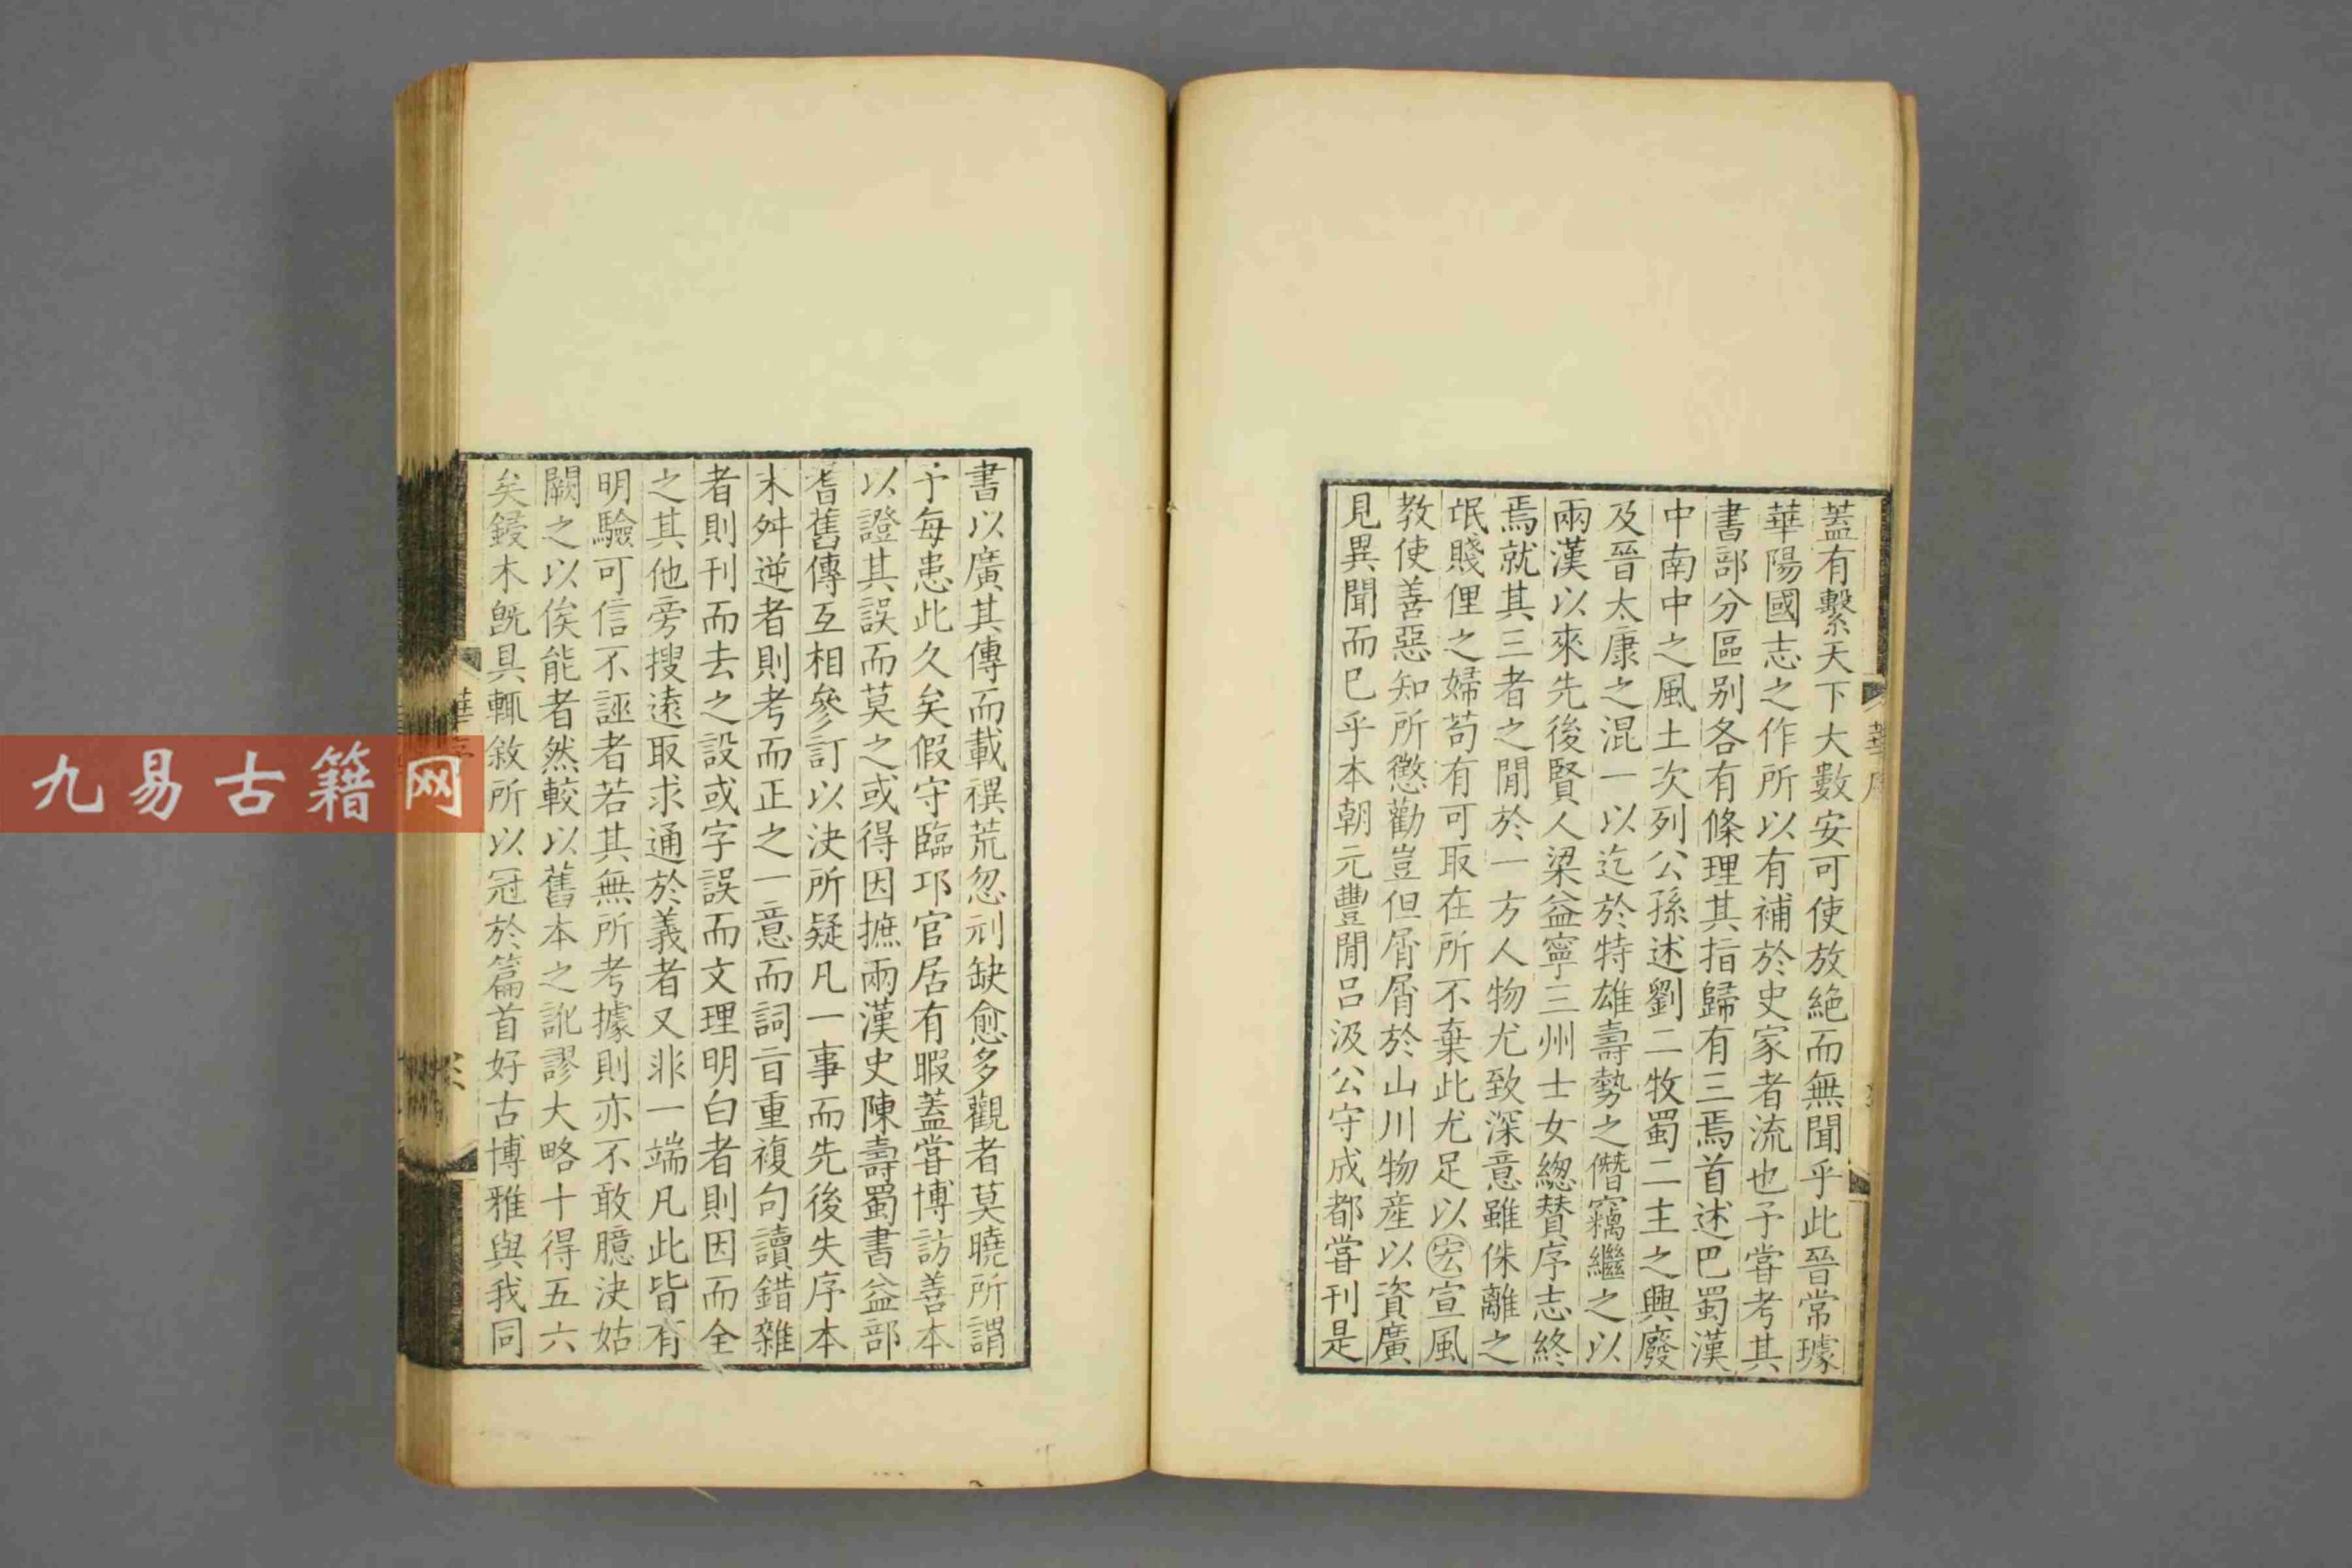 蓋有繫天下大數安可使放絶而無聞乎此晉常璩
華陽國志之作所以有補於史家者流也予嘗考其
書部分區别各有條理其指歸有三焉首述巴蜀漢
中南中之風土次列公孫述劉二牧蜀二主之興廢
及晉太康之混一以迄於特雄壽勢之僭竊繼之以
兩漢以來先後賢人梁益寧三州士女緫賛序志終
焉就其三者之閒於一方人物尤致深意雖侏離之
氓賤俚之婦苟有可取在所不棄此尤足以宏宣風
教使善惡知所懲勸豈但屑屑於山川物産以資廣
見異聞而已乎本朝元豐閒吕汲公守成都嘗刊是
書以廣其傳而載禩荒忽刓缺愈多觀者莫曉所謂
予每患此久矣假守臨邛官居有暇蓋嘗博訪善本
以證其誤而莫之或得因摭兩漢史陳壽蜀書益部
耆舊傳互相參訂以決所疑凡一事而先後失序本
末舛逆者則考而正之一意而詞旨重複句讀錯雜
者則刊而去之設或字誤而文理明白者則因而全
之其他旁搜遠取求通於義者又非一端凡此皆有
明驗可信不誣者若其無所考據則亦不敢臆決姑
闕之以俟能者然較以舊本之訛謬大略十得五六
矣鋟木旣具輒敘所以冠於篇首好古博雅與我同
華序
九易古籍网